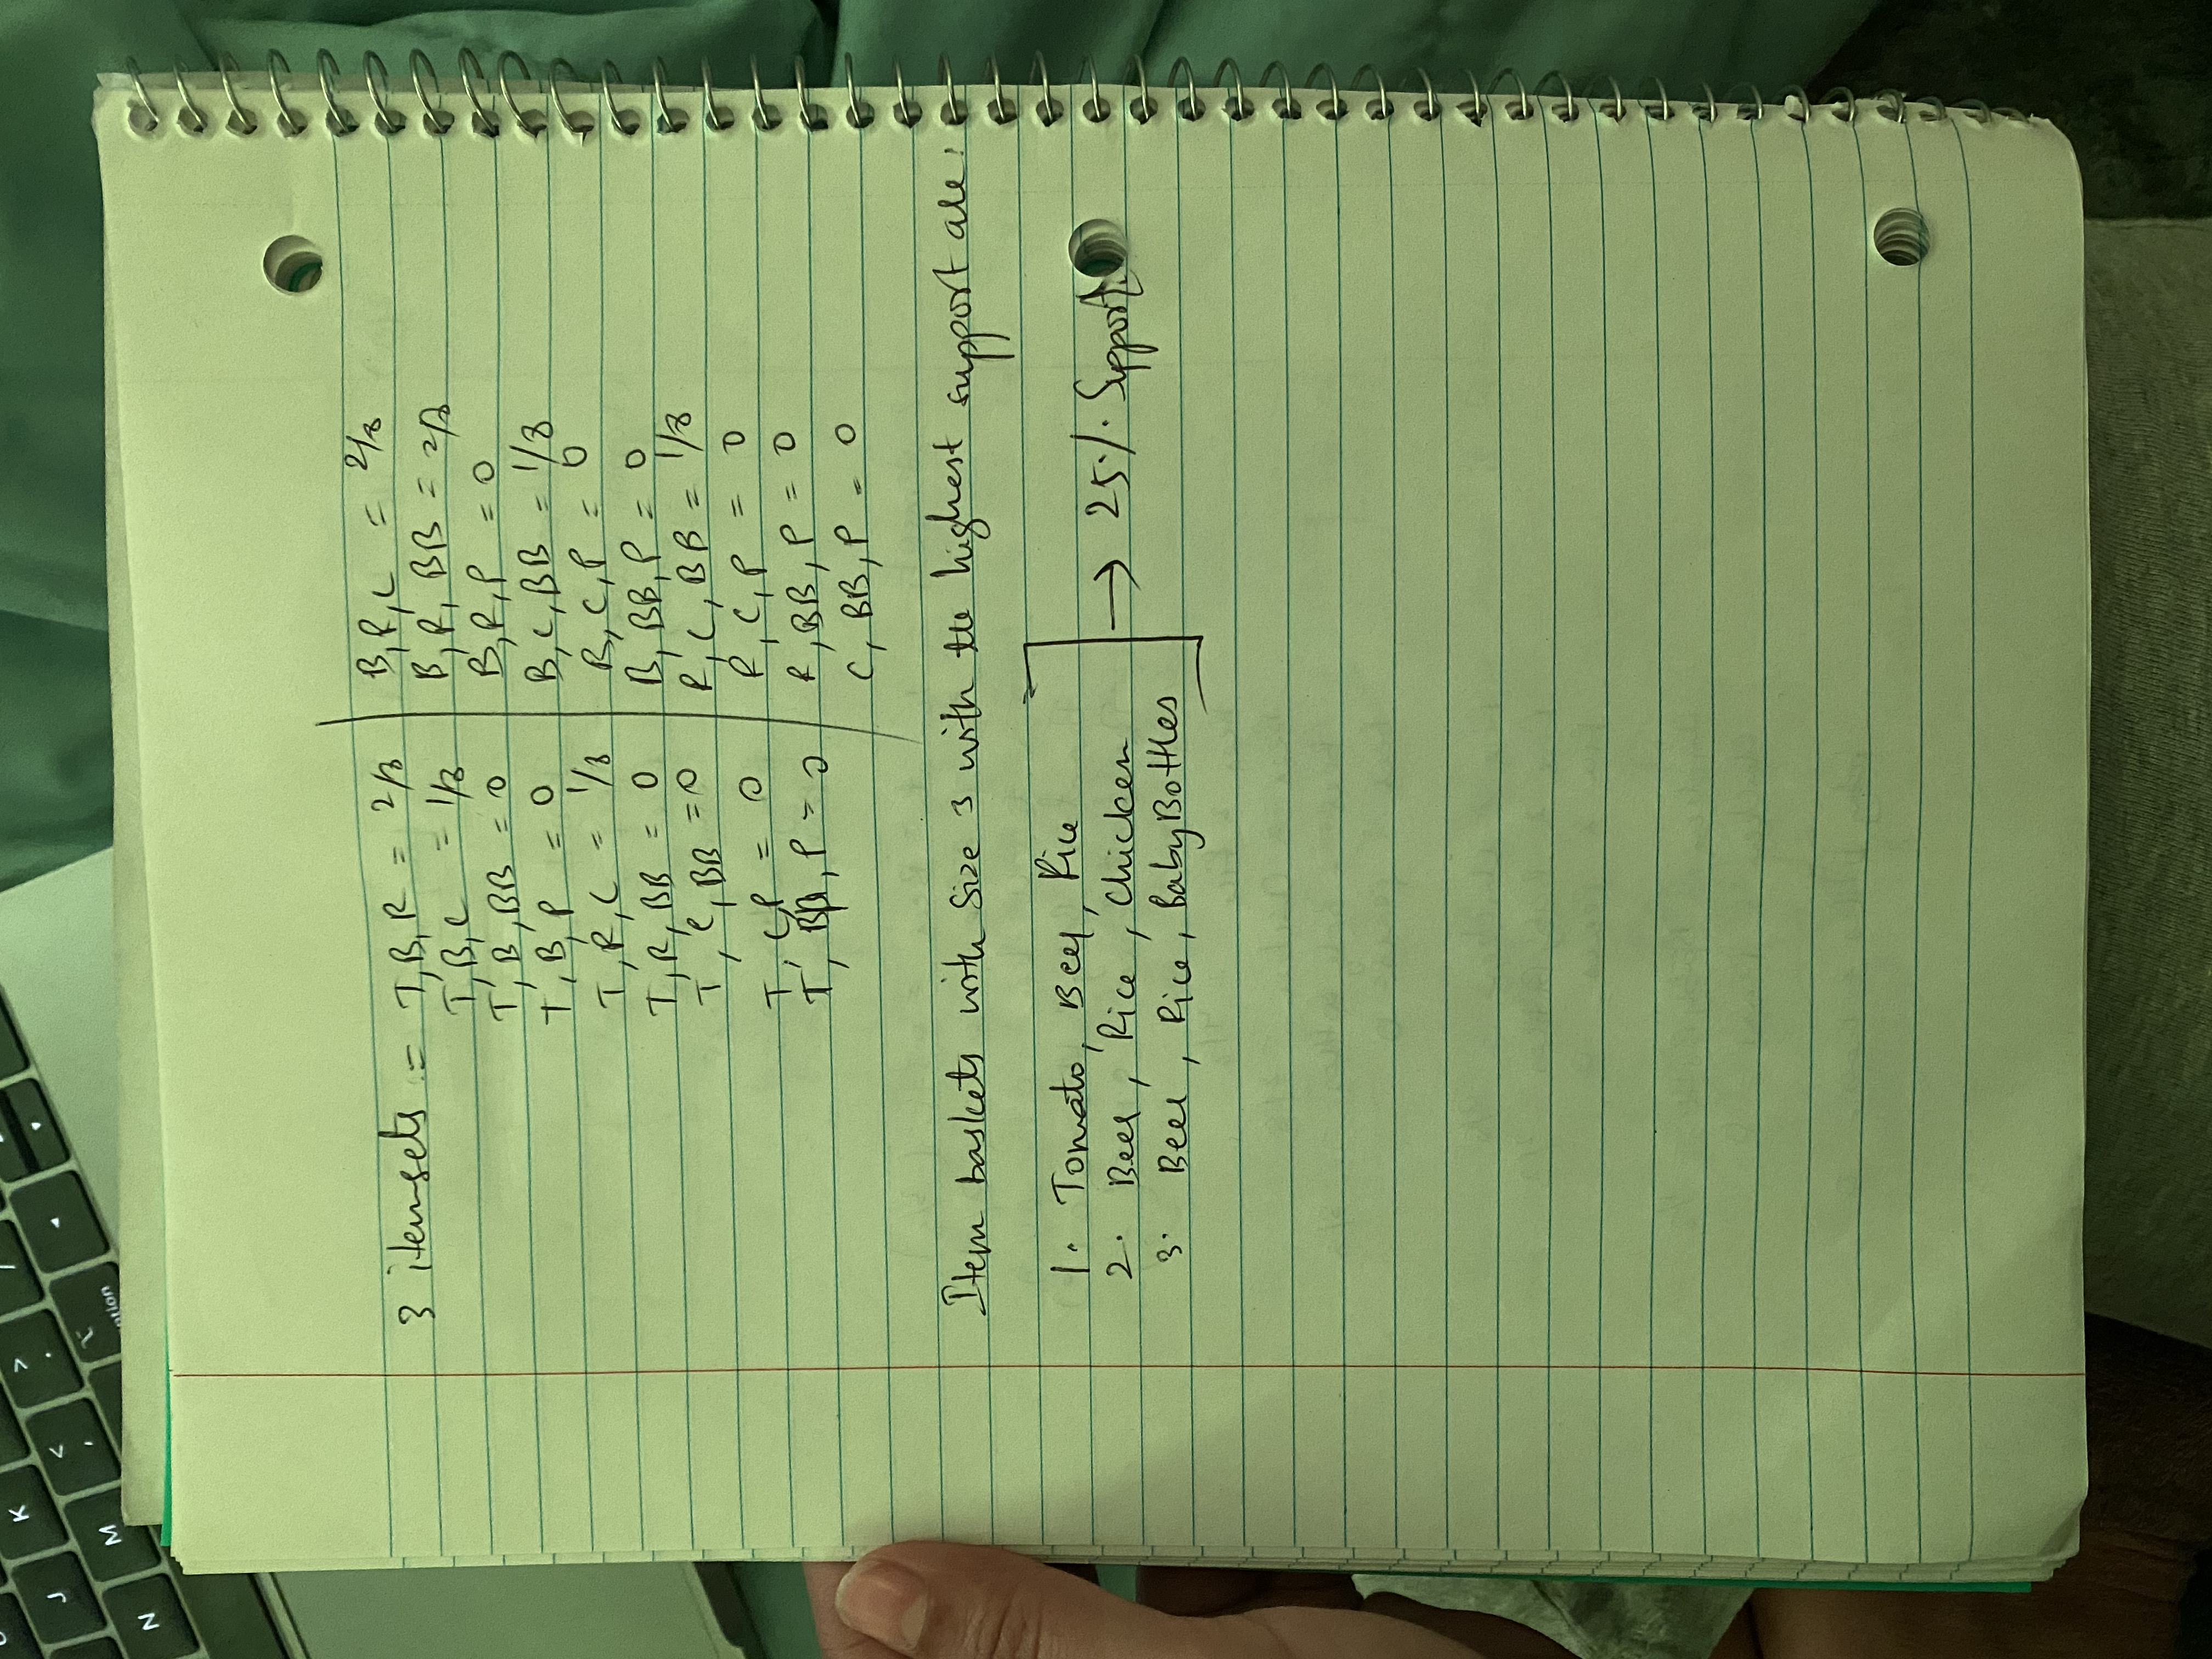 3 itemsets := T,B,R = 2/8
T,B,C = 1/8
T,B,BB = 0
T,B,P = 0
T,R,C = 1/8
T,R,BB = 0
T,C,BB = 0
T,C,P = 0
T,BB,P = 0
B,R,C = 2/8
B,R,BB = 2/8
B,R,P = 0
B,C,BB = 1/8
B,C,P = 0
B,BB,P = 0
R,C,BB = 1/8
R,C,P = 0
R,BB,P = 0
C,BB,P = 0
Item baskets with Size 3 with the highest support are:
1. Tomato, Beer, Rice
2. Beer, Rice, Chicken
3. Beer, Rice, BabyBottles
→ 25% Support
option
K
M
J
N